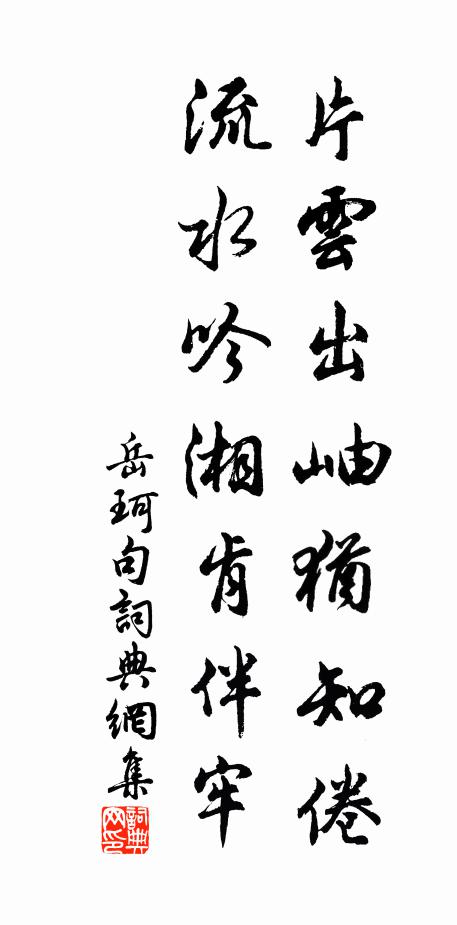 片雲出岫猶知倦
流水吟湘肯伴牢
岳珂句詞典網集
詞典网印